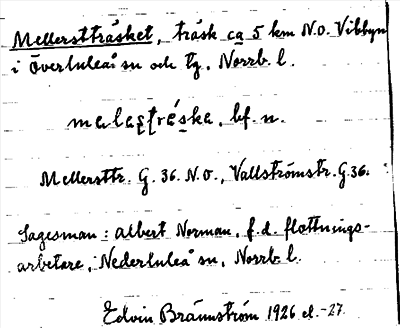 Mellerstträsket, träsk ca 5 km N.O. Vibbyn
i Överluleå sn och tg, Norrb. l.
melaʂʈréska, bf. n.
Mellersttr. G. 36. N.O., Vallströmstr. G. 36.
Sagesman: Albert Norman, f.d. flottnings-
arbetare, Nederluleå sn, Norrb. l.
Edvin Brännström 1926 el. -27.